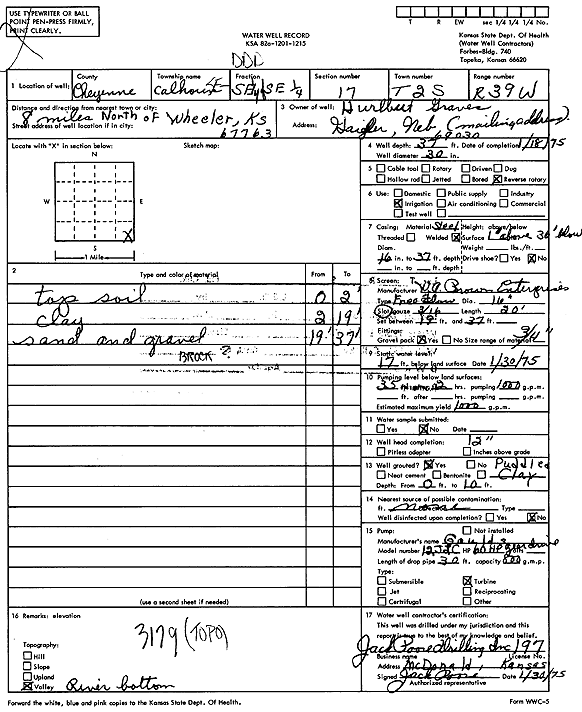 USE TYPEWRITER OR BALL
POINT PEN-PRESS FIRMLY,
PRINT CLEARLY.
WATER WELL RECORD
KSA 82a-1201-1215
T R EW sec 1/4 1/4 1/4 No.
Kansas State Dept. Of Health
(Water Well Contractors)
Forbes-Bldg. 740
Topeka, Kansas 66620
DDD
1 Location of well: County Cheyenne Township name Calhoun Fraction SE 1/4 SE 1/4 Section number 17 Town number T2S Range number R39W
Distance and direction from nearest town or city: 8 miles North of Wheeler, Ks
Street address of well location if in city: 67763
3 Owner of well: Hurlbert Graves
Address: Haigler, Neb (mailing address) 69030
Locate with "X" in section below: Sketch map:
N
W E
X
S
1 Mile
4 Well depth: 37 ft. Date of completion 1/18/75
Well diameter 30 in.
5 Cable tool Rotary Driven Dug
Hollow rod Jetted Bored X Reverse rotary
6 Use: Domestic Public supply Industry
X Irrigation Air conditioning Commercial
Test well
7 Casing: Material Steel Height: above/below
Threaded Welded X Surface 1' above 36' below
Diam. Weight lbs./ft.
16 in. to 37 ft. depth Drive shoe? Yes X No
in. to ft. depth
2 Type and color of material From To
top soil 0 2'
clay 2 19'
sand and gravel 19' 37'
BROCK ?
8 Screen:
Manufacturer Brown Enterprises
Type Free Flow Dia. 16"
Slot/gauze 3/16 Length 20'
Set between 19 ft. and 37 ft.
Fittings:
Gravel pack X Yes No Size range of material 3/4"
9 Static water level:
17 ft. below land surface Date 1/30/75
10 Pumping level below land surfaces:
35 ft. after 2 hrs. pumping 1000 g.p.m.
ft. after hrs. pumping g.p.m.
Estimated maximum yield 1000 g.p.m.
11 Water sample submitted:
Yes X No Date
12 Well head completion: 12"
Pitless adapter Inches above grade
13 Well grouted? X Yes No Puddled
Neat cement Bentonite Clay
Depth: From 0 ft. to 10 ft.
14 Nearest source of possible contamination:
ft. Type
Well disinfected upon completion? Yes X No
15 Pump: Not installed
Manufacturer's name Goulds
Model number 12JLC HP 60 HP
Length of drop pipe 30 ft. capacity 800 g.m.p.
Type:
Submersible X Turbine
Jet Reciprocating
Centrifugal Other
(use a second sheet if needed)
16 Remarks: elevation
3179 (TOPO)
Topography:
Hill
Slope
Upland
X Valley River bottom
17 Water well contractor's certification:
This well was drilled under my jurisdiction and this
report is true to the best of my knowledge and belief.
Jack Poore Drilling Inc 197
Business name License No.
Address McDonald, Kansas
Signed Jack Poore Date 1/30/75
Authorized representative
Forward the white, blue and pink copies to the Kansas State Dept. Of Health.
Form WWC-5